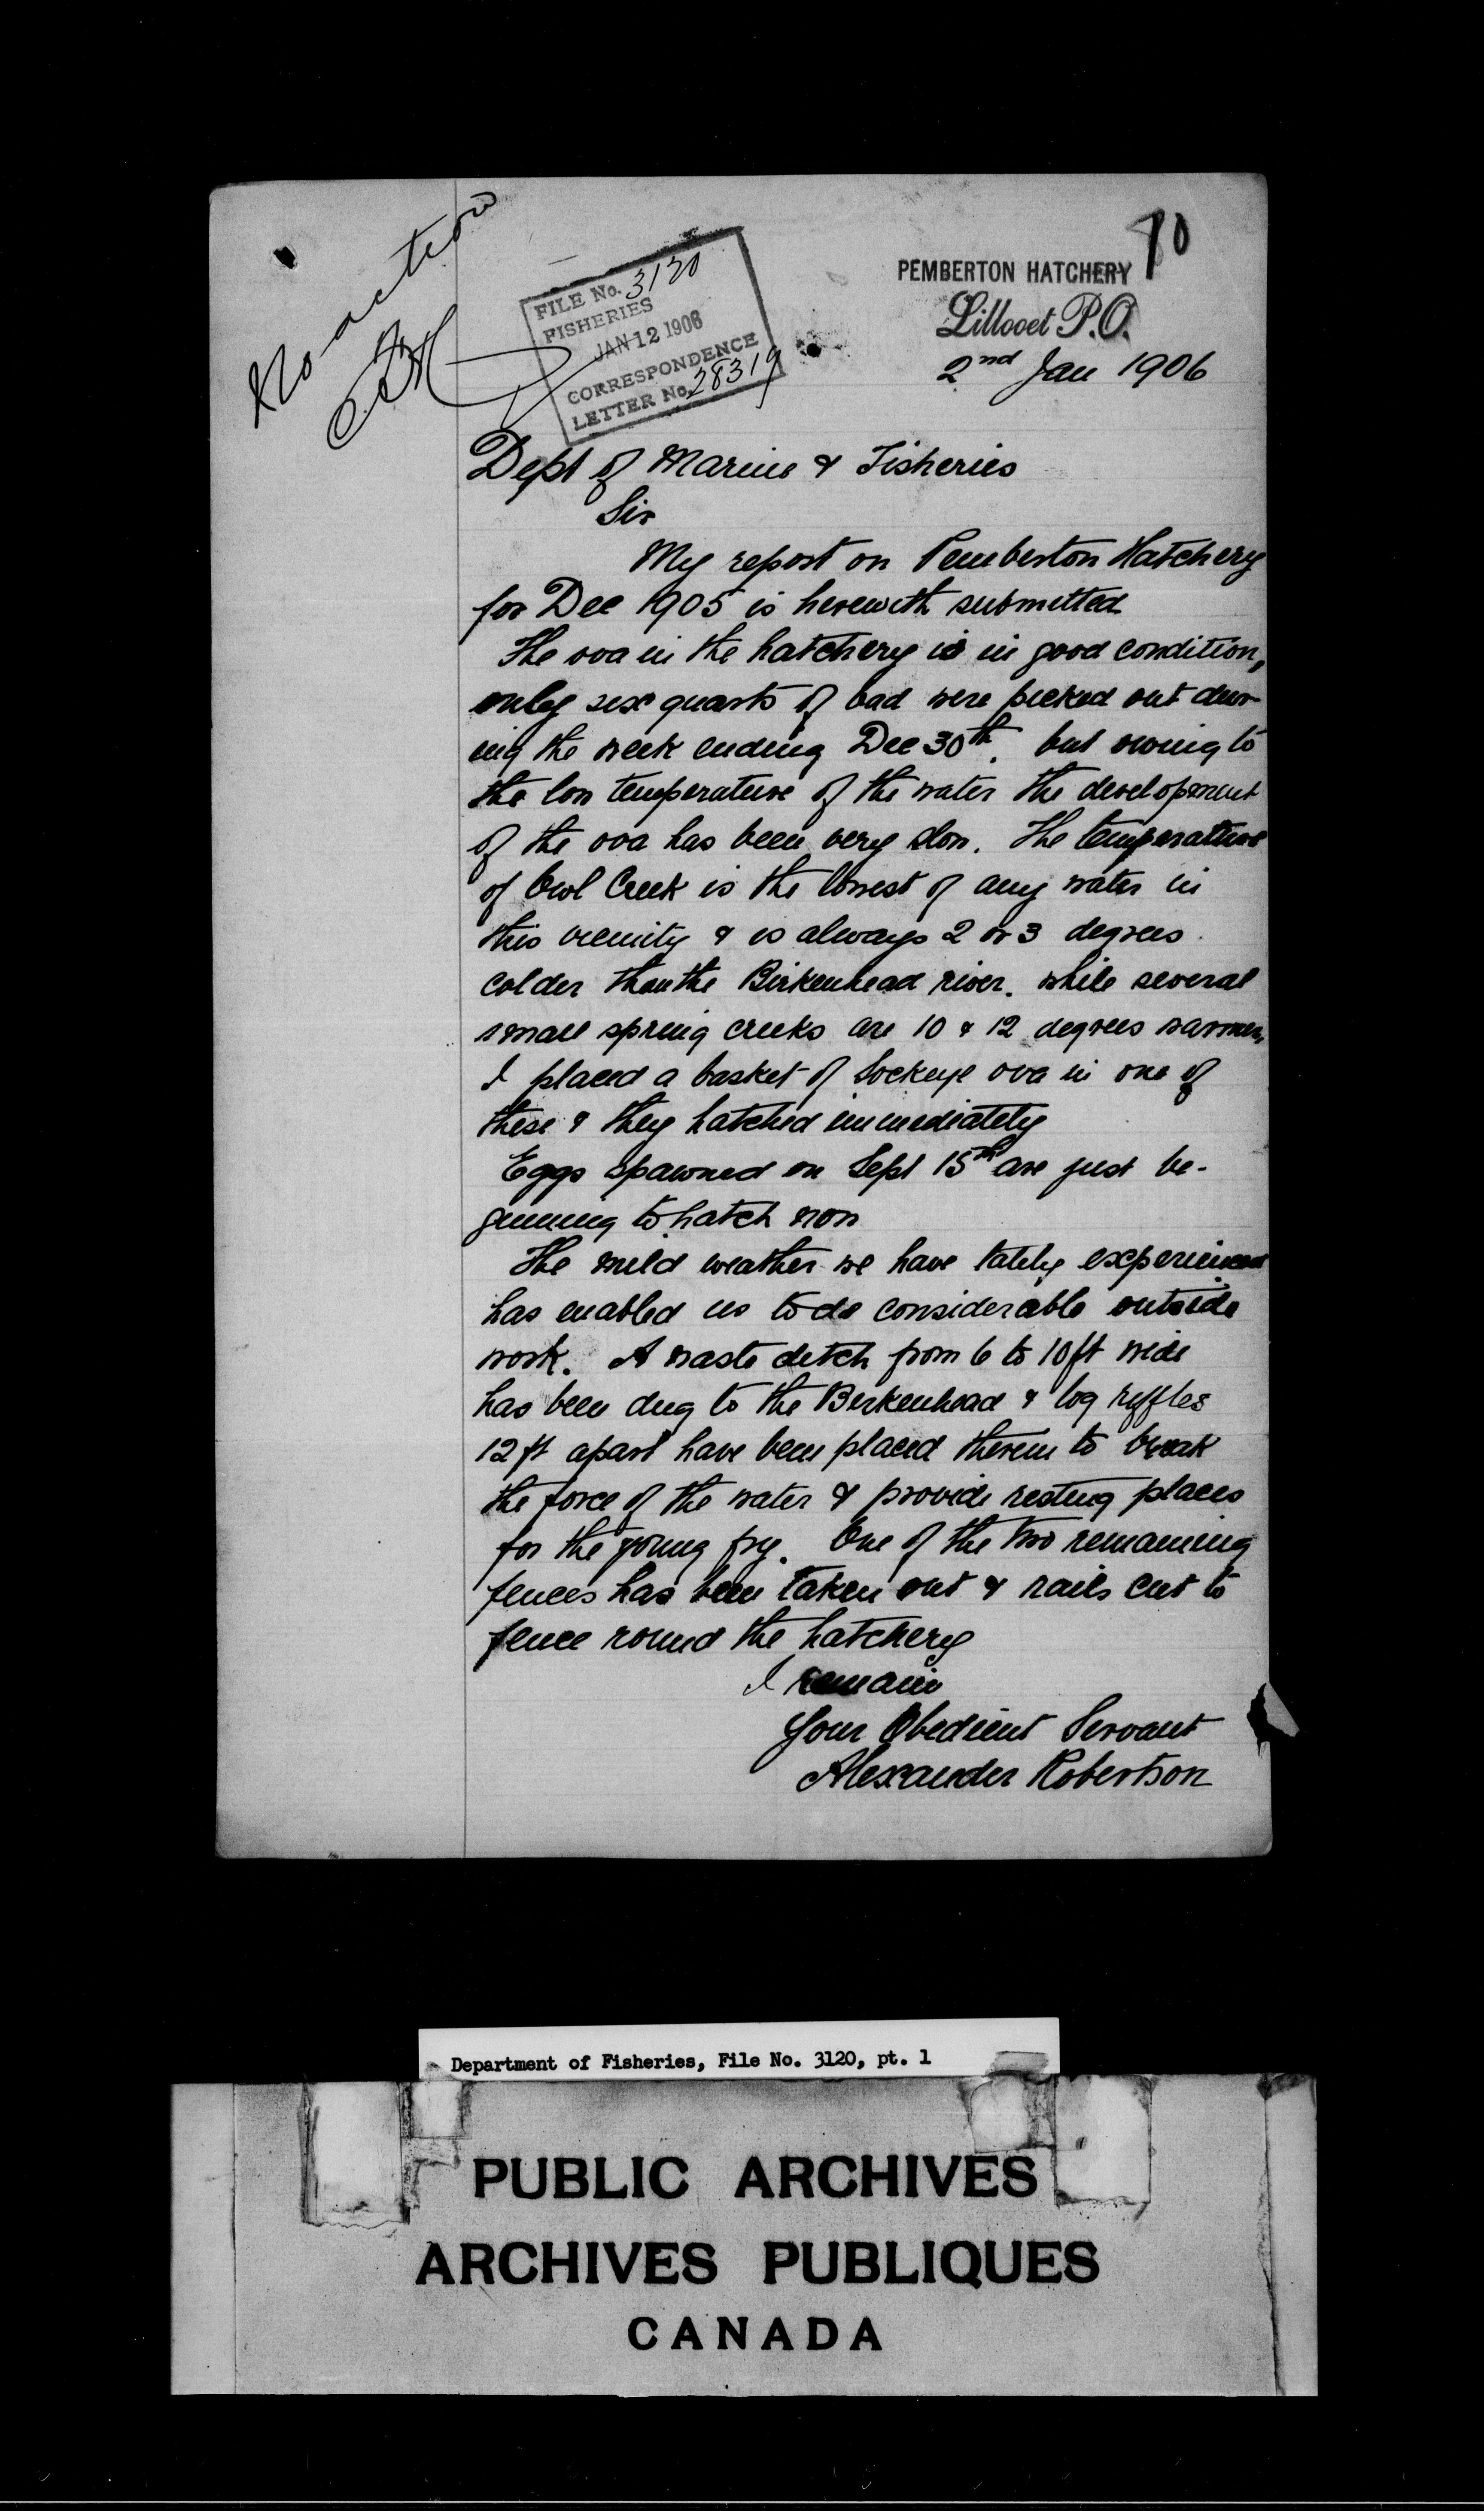 No action
80
FILE No. 3120
FISHERIES
JAN 12 1906
CORRESPONDENCE
LETTER No. 28319
PEMBERTON HATCHERY
Lillooet P.O.
2nd Jan 1906
Dept of Marine & Fisheries
Sir
My report on Pemberton Hatchery
for Dec 1905 is herewith submitted
The ova in the hatchery is in good condition,
only six quarts of bad were picked out dur-
ing the week ending Dec 30th. but owing to
the low temperature of the water the development
of the ova has been very slow. The temperature
of Owl Creek is the lowest of any water in
this vicinity & is always 2 or 3 degrees
colder than the Birkenhead river. while several
small spring creeks are 10 & 12 degrees warmer,
I placed a basket of Sockeye ova in one of
these & they hatched immediately
Eggs spawned on Sept 15th are just be-
ginning to hatch now
The mild weather we have lately experienced
has enabled us to do considerable outside
work. A waste ditch from 6 to 10 ft wide
has been dug to the Birkenhead & log riffles
12 ft apart have been placed therein to break
the force of the water & provide resting places
for the young fry. One of the two remaining
fences has been taken out & rails cut to
fence round the hatchery
I remain
Your Obedient Servant
Alexander Robertson
Department of Fisheries, File No. 3120, pt. 1
PUBLIC ARCHIVES
ARCHIVES PUBLIQUES
CANADA